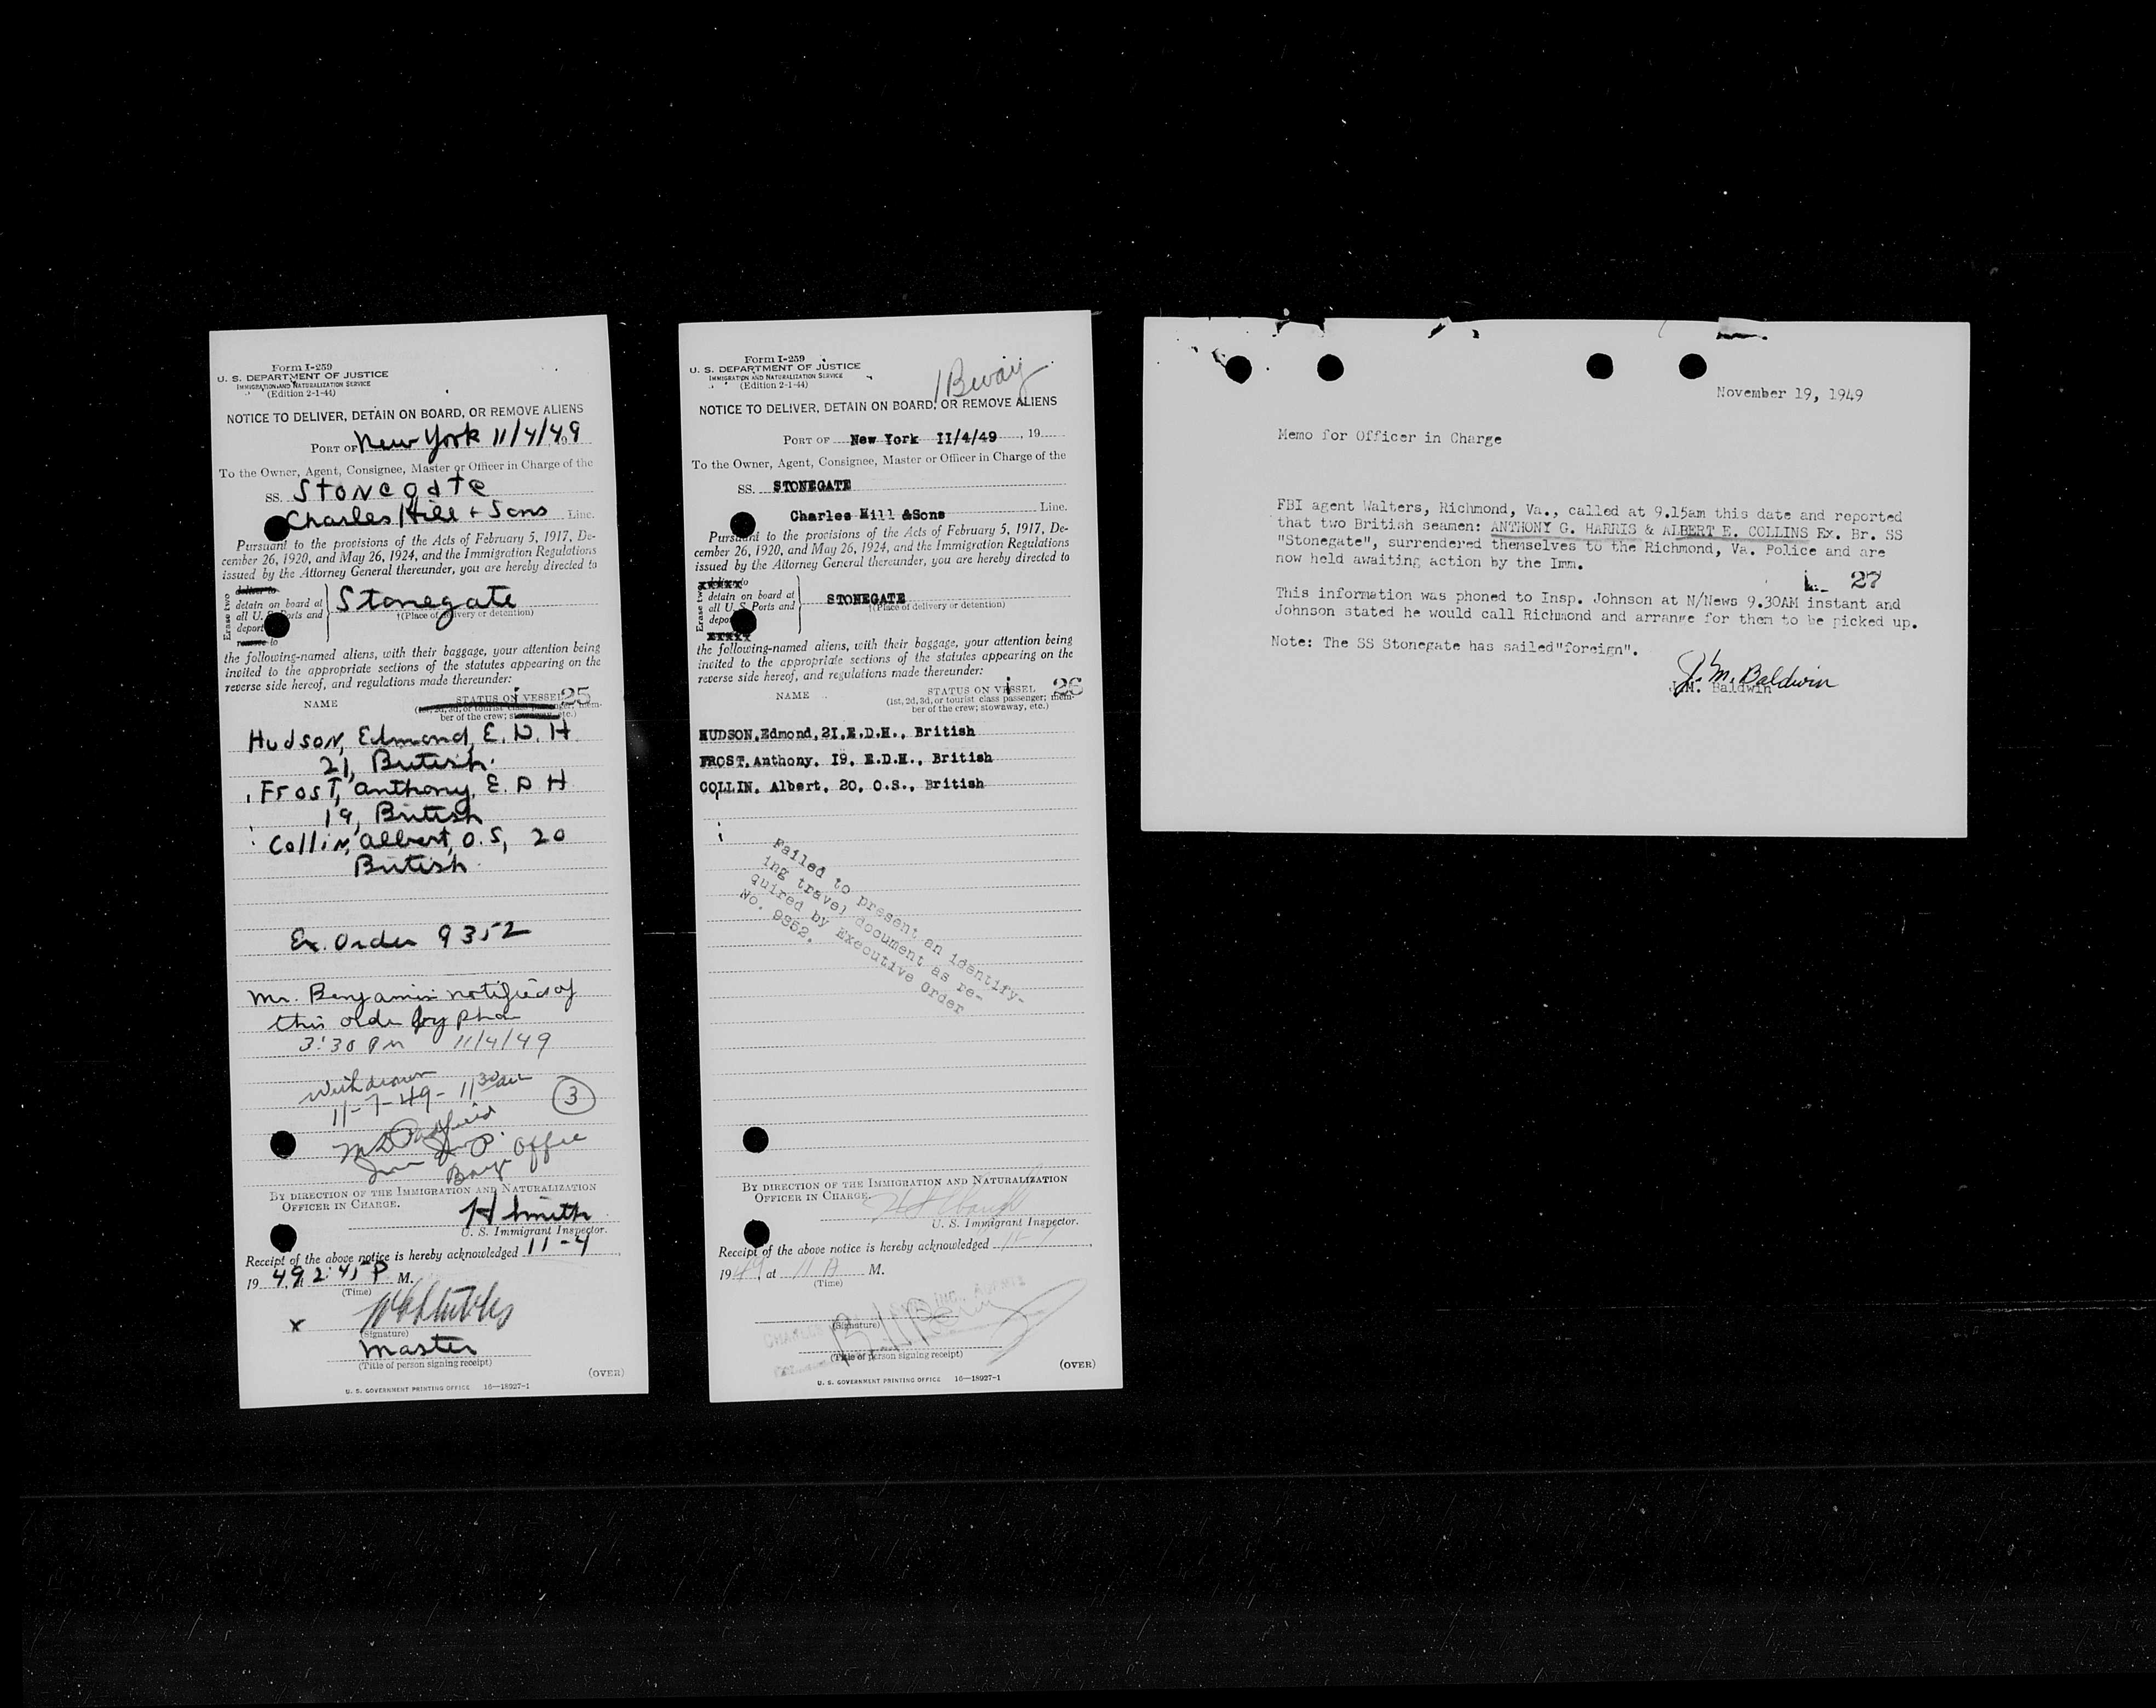 Form I-259
U. S. DEPARTMENT OF JUSTICE
IMMIGRATION AND NATURALIZATION SERVICE
(Edition 2-1-44)
NOTICE TO DELIVER, DETAIN ON BOARD, OR REMOVE ALIENS
PORT OF New York 11/4/49
To the Owner, Agent, Consignee, Master or Officer in Charge of the
SS. Stonegate
Charles Hill + Sons Line.
Pursuant to the provisions of the Acts of February 5, 1917, De-
cember 26, 1920, and May 26, 1924, and the Immigration Regulations
issued by the Attorney General thereunder, you are hereby directed to
Erase two
deliver to
detain on board at
all U. S. Ports and
deport
remove to
Stonegate
†(Place of delivery or detention)
the following-named aliens, with their baggage, your attention being
invited to the appropriate sections of the statutes appearing on the
reverse side hereof, and regulations made thereunder:
NAME
STATUS ON VESSEL 25
(1st, 2d, 3d, or tourist class passenger; mem-
ber of the crew; stowaway, etc.)
Hudson, Edmond, E. D. H
21, British.
Frost, Anthony, E. D H
19, British
Collin, Albert, O.S, 20
British
Ex. Order 9352
Mr. Benjamin notified of
this order by phone
3:30 PM 11/4/49
Withdrawn
11-7-49- 11 30 am
3
Barge Office
BY DIRECTION OF THE IMMIGRATION AND NATURALIZATION
OFFICER IN CHARGE.
H Smith
U. S. Immigrant Inspector.
Receipt of the above notice is hereby acknowledged 11-4
19 49, 2:45 P M.
(Time)
x
(Signature)
Master
(Title of person signing receipt)
(OVER)
U. S. GOVERNMENT PRINTING OFFICE 16—18927-1
Form I-259
U. S. DEPARTMENT OF JUSTICE
IMMIGRATION AND NATURALIZATION SERVICE
(Edition 2-1-44)
1 Bway
NOTICE TO DELIVER, DETAIN ON BOARD, OR REMOVE ALIENS
PORT OF New York II/4/49, 19
To the Owner, Agent, Consignee, Master or Officer in Charge of the
SS. STONEGATE
Charles Hill &Sons Line.
Pursuant to the provisions of the Acts of February 5, 1917, De-
cember 26, 1920, and May 26, 1924, and the Immigration Regulations
issued by the Attorney General thereunder, you are hereby directed to
Erase two
detain on board at
all U. S. Ports and
deport
STONEGATE
†(Place of delivery or detention)
the following-named aliens, with their baggage, your attention being
invited to the appropriate sections of the statutes appearing on the
reverse side hereof, and regulations made thereunder:
NAME
STATUS ON VESSEL 26
(1st, 2d, 3d, or tourist class passenger; mem-
ber of the crew; stowaway, etc.)
HUDSON,Edmond,2I,E.D.H., British
FROST,Anthony, I9, E.D.H., British
COLLIN, Albert, 20, O.S., British
Failed to present an identify-
ing travel document as re-
quired by Executive Order
No. 9352.
BY DIRECTION OF THE IMMIGRATION AND NATURALIZATION
OFFICER IN CHARGE.
U. S. Immigrant Inspector.
Receipt of the above notice is hereby acknowledged 11-7
19 49, at 11 A M.
(Time)
(Signature)
(Title of person signing receipt)
(OVER)
U. S. GOVERNMENT PRINTING OFFICE 16—18927-1
November 19, 1949
Memo for Officer in Charge
FBI agent Walters, Richmond, Va., called at 9.15am this date and reported
that two British seamen: ANTHONY G. HARRIS & ALBERT E. COLLINS Ex. Br. SS
"Stonegate", surrendered themselves to the Richmond, Va. Police and are
now held awaiting action by the Imm.
27
This information was phoned to Insp. Johnson at N/News 9.30AM instant and
Johnson stated he would call Richmond and arrange for them to be picked up.
Note: The SS Stonegate has sailed"foreign".
J. M. Baldwin
J.M. Baldwin